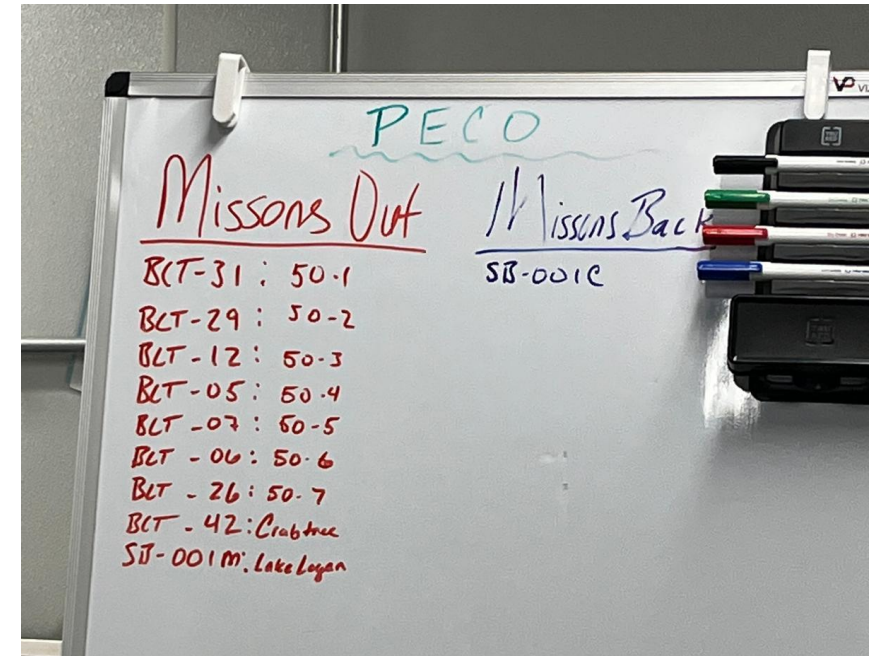 PECO
Missons Out
BCT-31: 50-1
BCT-29: 50-2
BCT-12: 50-3
BCT-05: 50-4
BCT-07: 50-5
BCT-06: 50-6
BCT-26: 50-7
BCT-42: Crabtree
SB-001M: Lake Logan
Missons Back
SB-001C